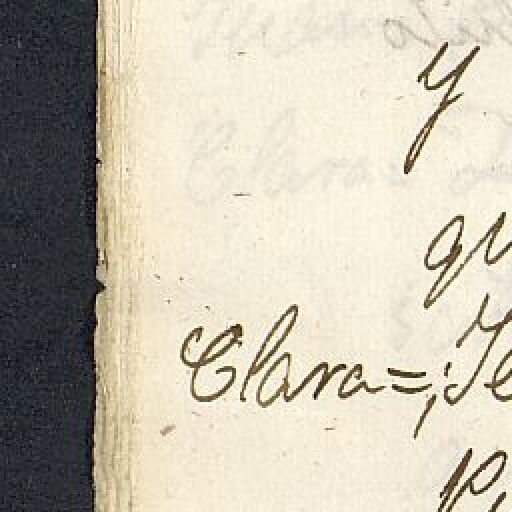 y
qu
Clara=¡Te